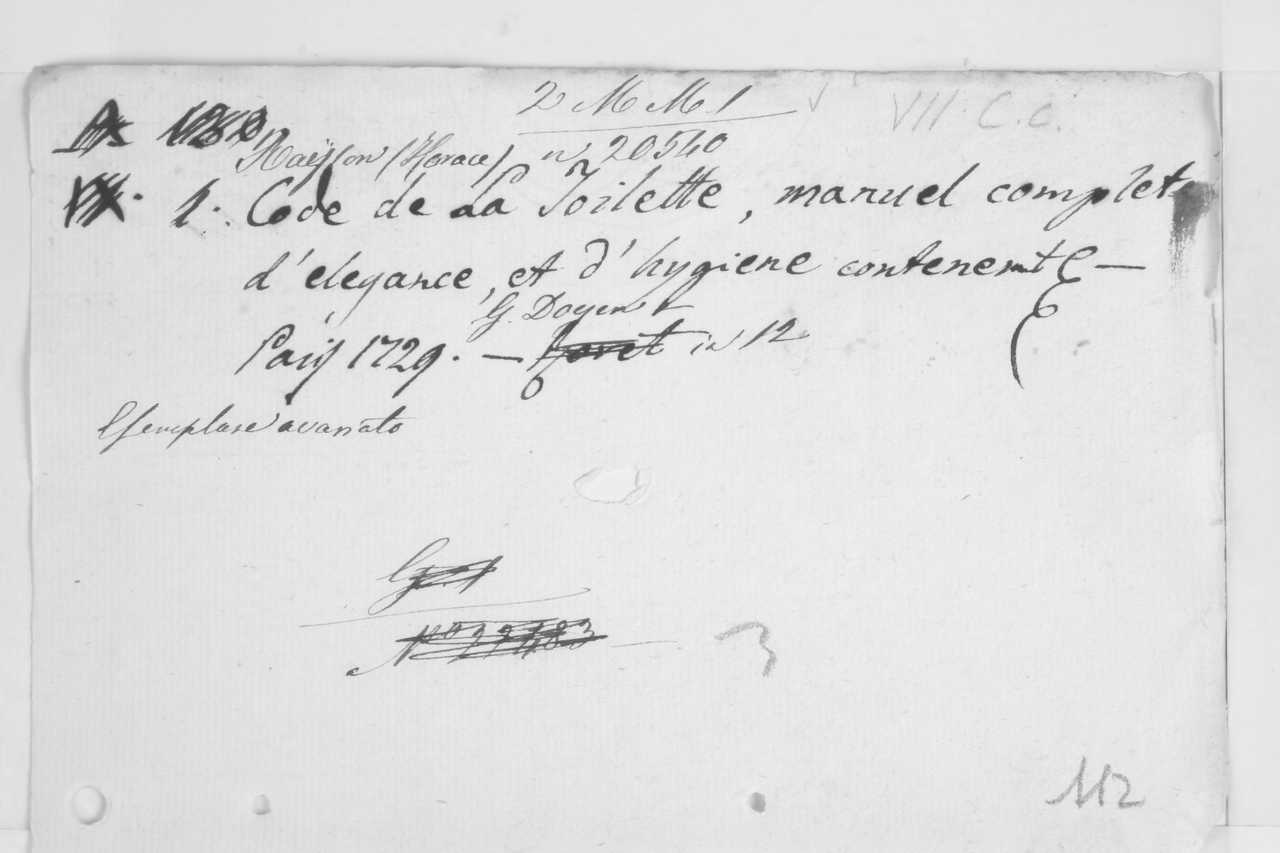 2 M M 1
VII C. C.
Raisson (Horace) n 20540
1. Code de La Toilette, manuel complet
d'elegance, et d'hygiene contenent &—
G. Doyen
Paris 1729. — in 12
Esemplare avariato
G
N° 22483
3
112